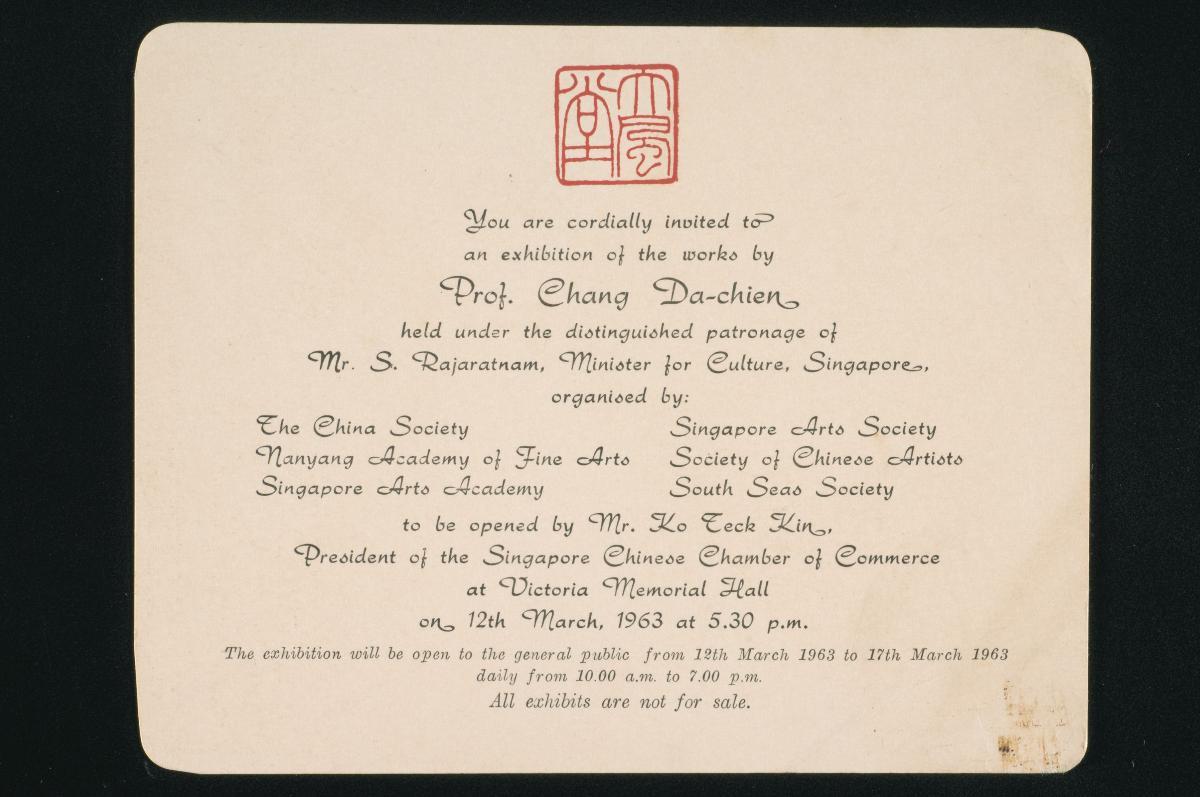 大風堂
You are cordially invited to
an exhibition of the works by
Prof. Chang Da-chien
held under the distinguished patronage of
Mr. S. Rajaratnam, Minister for Culture, Singapore,
organised by:
The China Society
Nanyang Academy of Fine Arts
Singapore Arts Academy
Singapore Arts Society
Society of Chinese Artists
South Seas Society
to be opened by Mr. Ko Teck Kin,
President of the Singapore Chinese Chamber of Commerce
at Victoria Memorial Hall
on 12th March, 1963 at 5.30 p.m.
The exhibition will be open to the general public from 12th March 1963 to 17th March 1963
daily from 10.00 a.m. to 7.00 p.m.
All exhibits are not for sale.